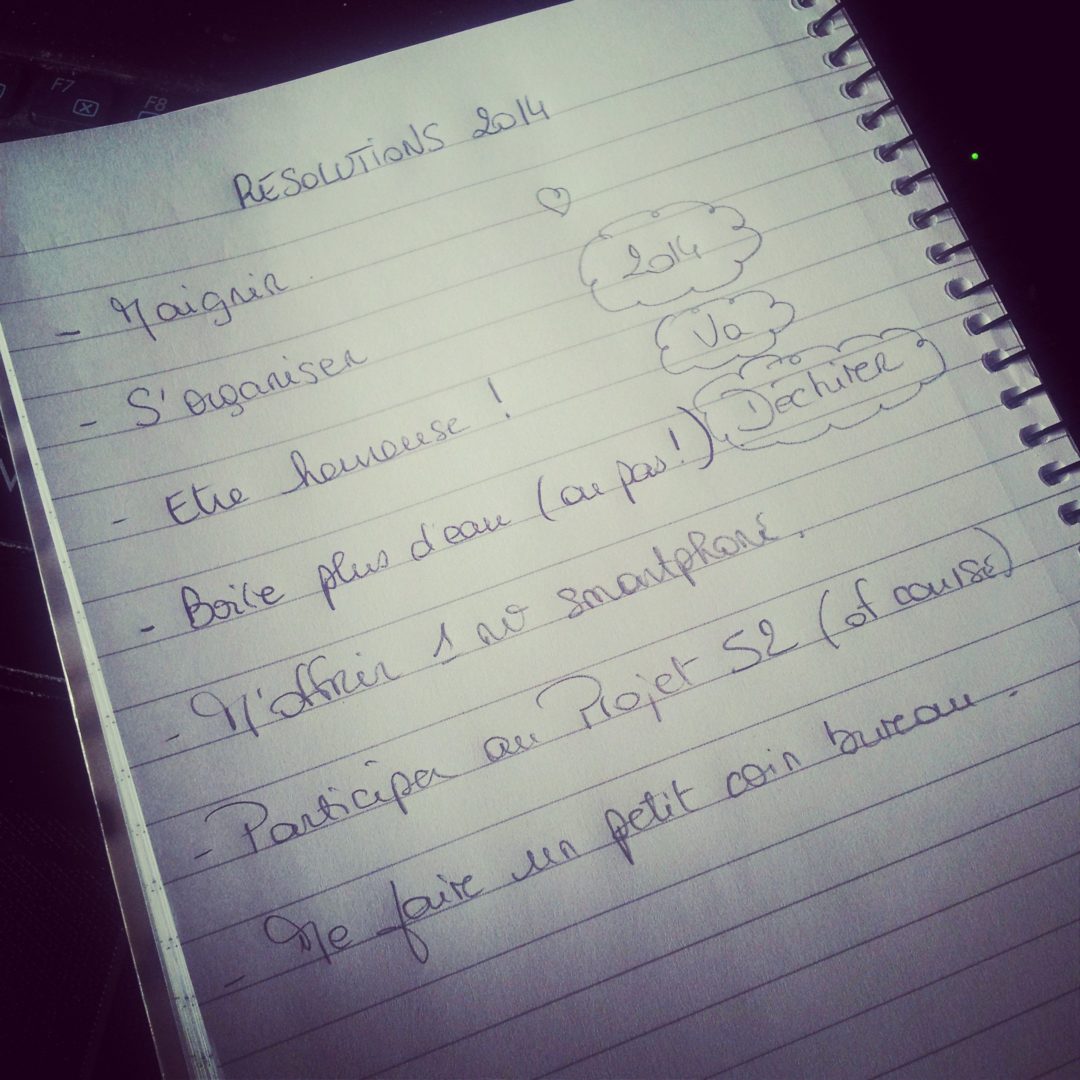 F7
F8
RESOLUTIONS 2014
- Maigrir
- S'organiser
- Etre heureuse !
- Boire plus d'eau (ou pas !)
- M'offrir 1 nv smartphone.
- Participer au Projet 52 (of course)
- Me faire un petit coin bureau.
2014
Va
Déchirer